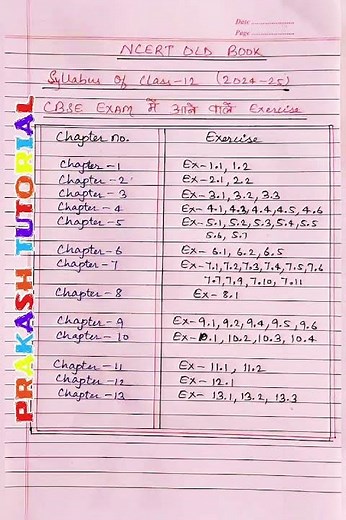 Date ..................
Page ..................
NCERT OLD BOOK
Syllabus Of Class-12 (2024-25)
CBSE EXAM में आने वाले Exercise
PRAKASH TUTORIAL
Chapter no. Exercise
Chapter - 1 Ex - 1.1, 1.2
Chapter - 2 Ex - 2.1, 2.2
Chapter - 3 Ex - 3.1, 3.2, 3.3
Chapter - 4 Ex - 4.1, 4.2, 4.4, 4.5, 4.6
Chapter - 5 Ex - 5.1, 5.2, 5.3, 5.4, 5.5
5.6, 5.7
Chapter - 6 Ex - 6.1, 6.2, 6.5
Chapter - 7 Ex - 7.1, 7.2, 7.3, 7.4, 7.5, 7.6
7.7, 7.9, 7.10, 7.11
Chapter - 8 Ex - 8.1
Chapter - 9 Ex - 9.1, 9.2, 9.4, 9.5, 9.6
Chapter - 10 Ex - 10.1, 10.2, 10.3, 10.4
Chapter - 11 Ex - 11.1, 11.2
Chapter - 12 Ex - 12.1
Chapter - 13 Ex - 13.1, 13.2, 13.3